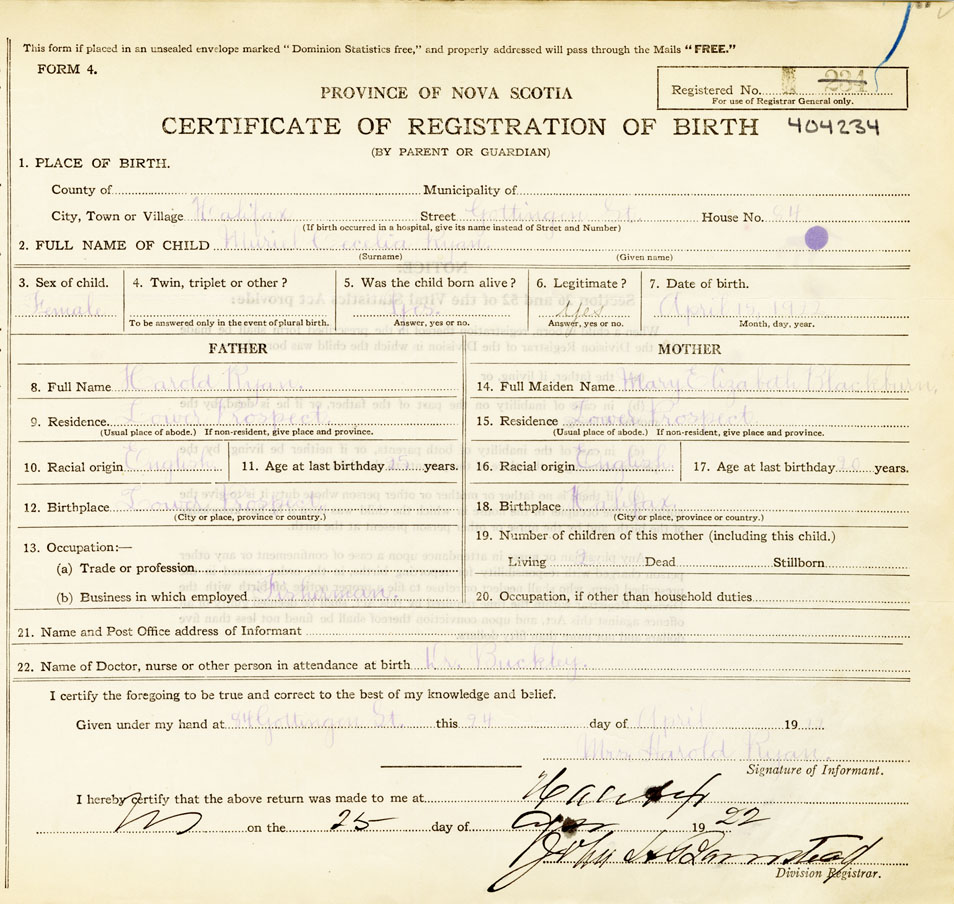 This form if placed in an unsealed envelope marked "Dominion Statistics free," and properly addressed will pass through the Mails "FREE."
FORM 4.
Registered No. 234
For use of Registrar General only.
PROVINCE OF NOVA SCOTIA
CERTIFICATE OF REGISTRATION OF BIRTH 404234
(BY PARENT OR GUARDIAN)
1. PLACE OF BIRTH.
County of Municipality of
City, Town or Village Halifax Street Gottingen St. House No. 84
(If birth occurred in a hospital, give its name instead of Street and Number)
2. FULL NAME OF CHILD Muriel Cecelia Ryan.
(Surname) (Given name)
3. Sex of child. 4. Twin, triplet or other? 5. Was the child born alive? 6. Legitimate? 7. Date of birth.
Female Yes. Yes April 15, 1922
To be answered only in the event of plural birth. Answer, yes or no. Answer, yes or no. Month, day, year.
FATHER
8. Full Name Harold Ryan.
9. Residence Lower Prospect.
(Usual place of abode.) If non-resident, give place and province.
10. Racial origin English 11. Age at last birthday years.
12. Birthplace Lower Prospect.
(City or place, province or country.)
13. Occupation:—
(a) Trade or profession
(b) Business in which employed Fisherman.
MOTHER
14. Full Maiden Name Mary Elizabeth Blackburn,
15. Residence Lower Prospect
(Usual place of abode.) If non-resident, give place and province.
16. Racial origin English 17. Age at last birthday years.
18. Birthplace Halifax.
(City or place, province or country.)
19. Number of children of this mother (including this child.)
Living 2 Dead Stillborn
20. Occupation, if other than household duties
21. Name and Post Office address of Informant
22. Name of Doctor, nurse or other person in attendance at birth Dr. Buckley.
I certify the foregoing to be true and correct to the best of my knowledge and belief.
Given under my hand at 84 Gottingen St. this 24 day of April 19 22
Mrs Harold Ryan.
Signature of Informant.
I hereby certify that the above return was made to me at Halifax
on the 25 day of Apr 19 22
John A Barnstead
Division Registrar.